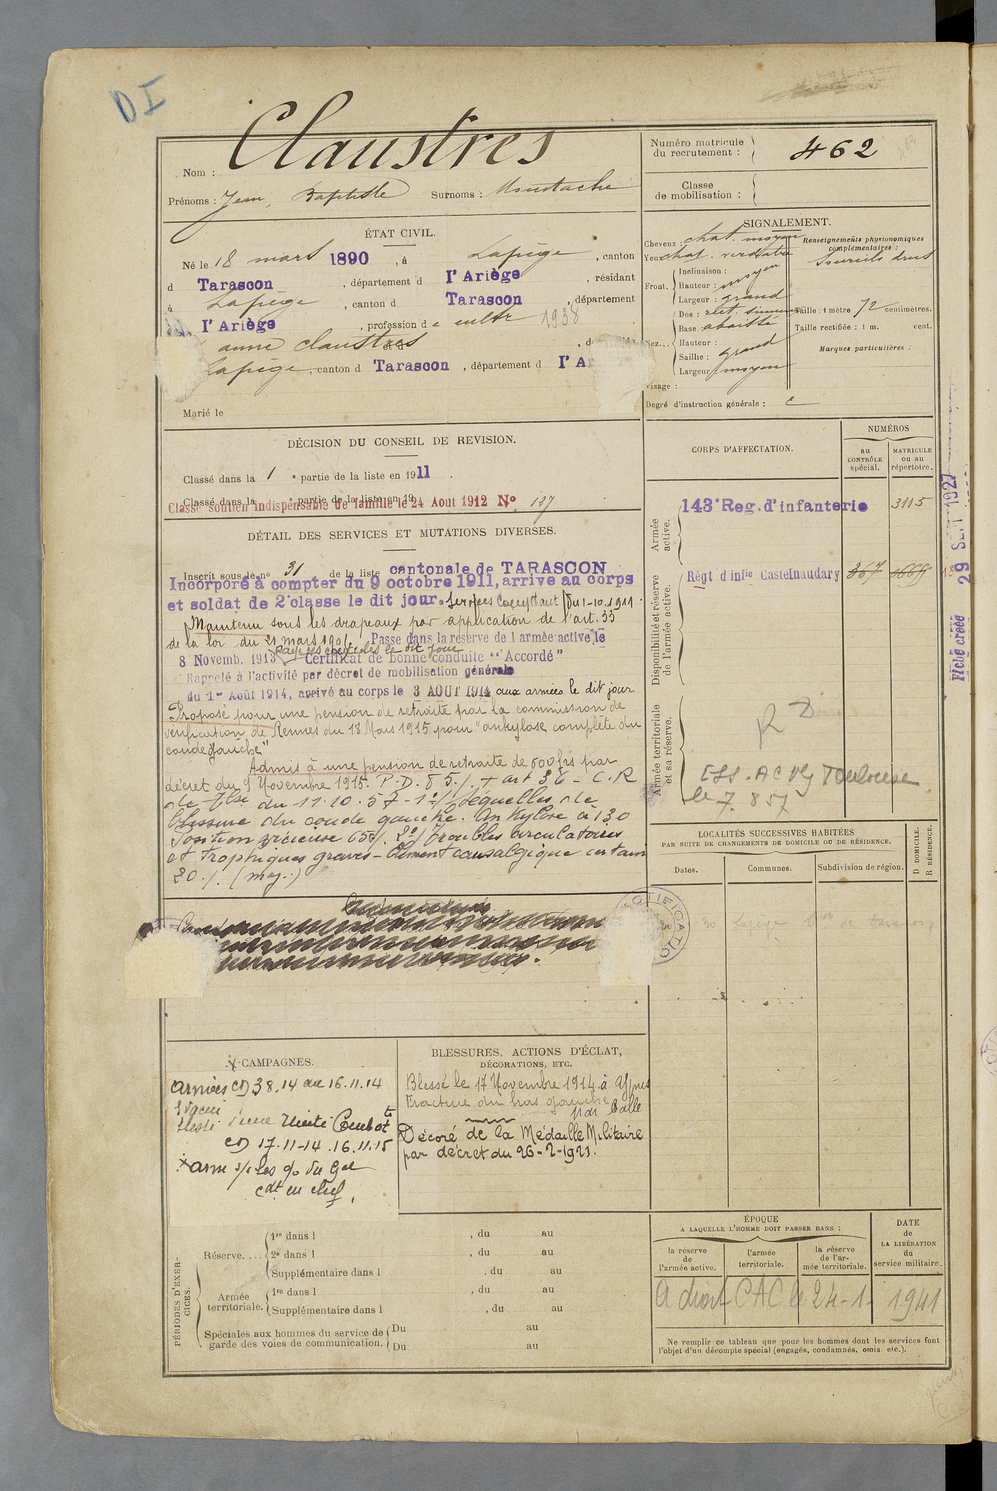 DI
Nom : Claustres
Prénoms : Jean, Baptiste Surnoms : Moustache
Numéro matricule du recrutement : 462
Classe de mobilisation :
ÉTAT CIVIL.
Né le 18 mars 1890, à Lapège, canton
d Tarascon, département d l'Ariège, résidant
à Lapège, canton d Tarascon, département
l'Ariège, profession de cultr 1938
anne claustres
Lapège, canton d Tarascon, département d l'A
Marié le
SIGNALEMENT.
Cheveux : chat. moyen
Yeux chat. verdatre
Front. Inclinaison : moyen
Hauteur : moyen
Largeur : grand
Nez... Dos : rect. sinueux
Base : abaissée
Hauteur :
Saillie : grand
Largeur : moyen
Visage :
Degré d'instruction générale :
Renseignements physionomiques complémentaires :
Sourcils drus
Taille : 1 mètre 72 centimètres.
Taille rectifiée : 1 m. cent.
Marques particulières :
DÉCISION DU CONSEIL DE REVISION.
Classé dans la 1 e partie de la liste en 1911.
Classé dans la e partie de la liste en 19
Classé soutien indispensable de famille le 24 Aout 1912 N° 127
DÉTAIL DES SERVICES ET MUTATIONS DIVERSES.
Inscrit sous le n° 31 de la liste cantonale de TARASCON
Incorporé à compter du 9 octobre 1911, arrivé au corps
et soldat de 2e classe le dit jour. Services comptant du 1-10.1911.
Maintenu sous les drapeaux par application de l'art. 33
de la loi du 21 mars 1905. Passé dans la réserve de l'armée active le
8 Novemb. 1913 Certificat de bonne conduite "Accordé"
Rappelé à l'activité par décret de mobilisation générale
du 1er Août 1914, arrivé au corps le 3 AOUT 1914 aux armées le dit jour
Proposé pour une pension de retraite par la commission de
vérification de Rennes du 18 Mars 1915 pour "ankylose complète du
coude gauche"
Admis à une pension de retraite de 600 frs par
décret du 9 Novembre 1915. P.D. 85 % + art 36 - C.R
de Tlse du 11.10.57 - 1°/ Séquelles de
blessure du coude gauche. Ankylose à 130
Position vicieuse 65%. 2°/ Troubles circulatoires
et trophiques graves - élément causalgique certain
20 % (maj.)
CORPS D'AFFECTATION.
NUMÉROS
au CONTRÔLE spécial.
MATRICULE ou au répertoire.
Armée active.
143e Reg. d'infanterie 3115
Disponibilité et réserve de l'armée active.
Régt d'infie Castelnaudary 367
Armée territoriale et sa réserve.
RD
ESS. AC VG Toulouse
le 7.8 57
29 SEPT 1927
Fiche créée
LOCALITÉS SUCCESSIVES HABITÉES
PAR SUITE DE CHANGEMENTS DE DOMICILE OU DE RÉSIDENCE.
Dates. Communes. Subdivision de région.
D DOMICILE. R RÉSIDENCE.
CAMPAGNES.
Armées CD 3 8.14 au 16.11.14
Evacué
blessé d'une Unité Combatte
CD 17.11-14.16.11.15
Arm s/s les o/ du Gal
cdt en chef.
BLESSURES, ACTIONS D'ÉCLAT,
DÉCORATIONS, ETC.
Blessé le 17 Novembre 1914 à Ypres
Fracture du bras gauche
par Balle
Décoré de la Médaille Militaire
par décret du 26-2-1921.
PÉRIODES D'EXERCICES.
Réserve.... 1re dans l , du au
2e dans l , du au
Supplémentaire dans l , du au
Armée territoriale. 1re dans l , du au
Supplémentaire dans l , du au
Spéciales aux hommes du service de garde des voies de communication. Du au
Du au
ÉPOQUE
A LAQUELLE L'HOMME DOIT PASSER DANS :
la réserve de l'armée active.
l'armée territoriale.
la réserve de l'armée territoriale.
DATE de LA LIBÉRATION du service militaire.
A droit CAC le 24-1-1941
Ne remplir ce tableau que pour les hommes dont les services font
l'objet d'un décompte spécial (engagés, condamnés, omis, etc.).